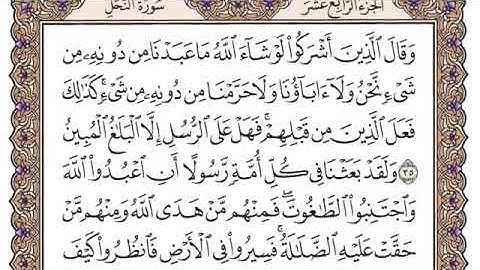 الجزء الرابع عشر سورة النحل
وَقَالَ ٱلَّذِينَ أَشْرَكُوا۟ لَوْ شَآءَ ٱللَّهُ مَا عَبَدْنَا مِن دُونِهِۦ مِن
شَىْءٍ نَّحْنُ وَلَآ ءَابَآؤُنَا وَلَا حَرَّمْنَا مِن دُونِهِۦ مِن شَىْءٍ ۚ كَذَٰلِكَ
فَعَلَ ٱلَّذِينَ مِن قَبْلِهِمْ ۚ فَهَلْ عَلَى ٱلرُّسُلِ إِلَّا ٱلْبَلَٰغُ ٱلْمُبِينُ
٣٥ وَلَقَدْ بَعَثْنَا فِى كُلِّ أُمَّةٍ رَّسُولًا أَنِ ٱعْبُدُوا۟ ٱللَّهَ
وَٱجْتَنِبُوا۟ ٱلطَّٰغُوتَ ۖ فَمِنْهُم مَّنْ هَدَى ٱللَّهُ وَمِنْهُم مَّنْ
حَقَّتْ عَلَيْهِ ٱلضَّلَٰلَةُ ۚ فَسِيرُوا۟ فِى ٱلْأَرْضِ فَٱنظُرُوا۟ كَيْفَ